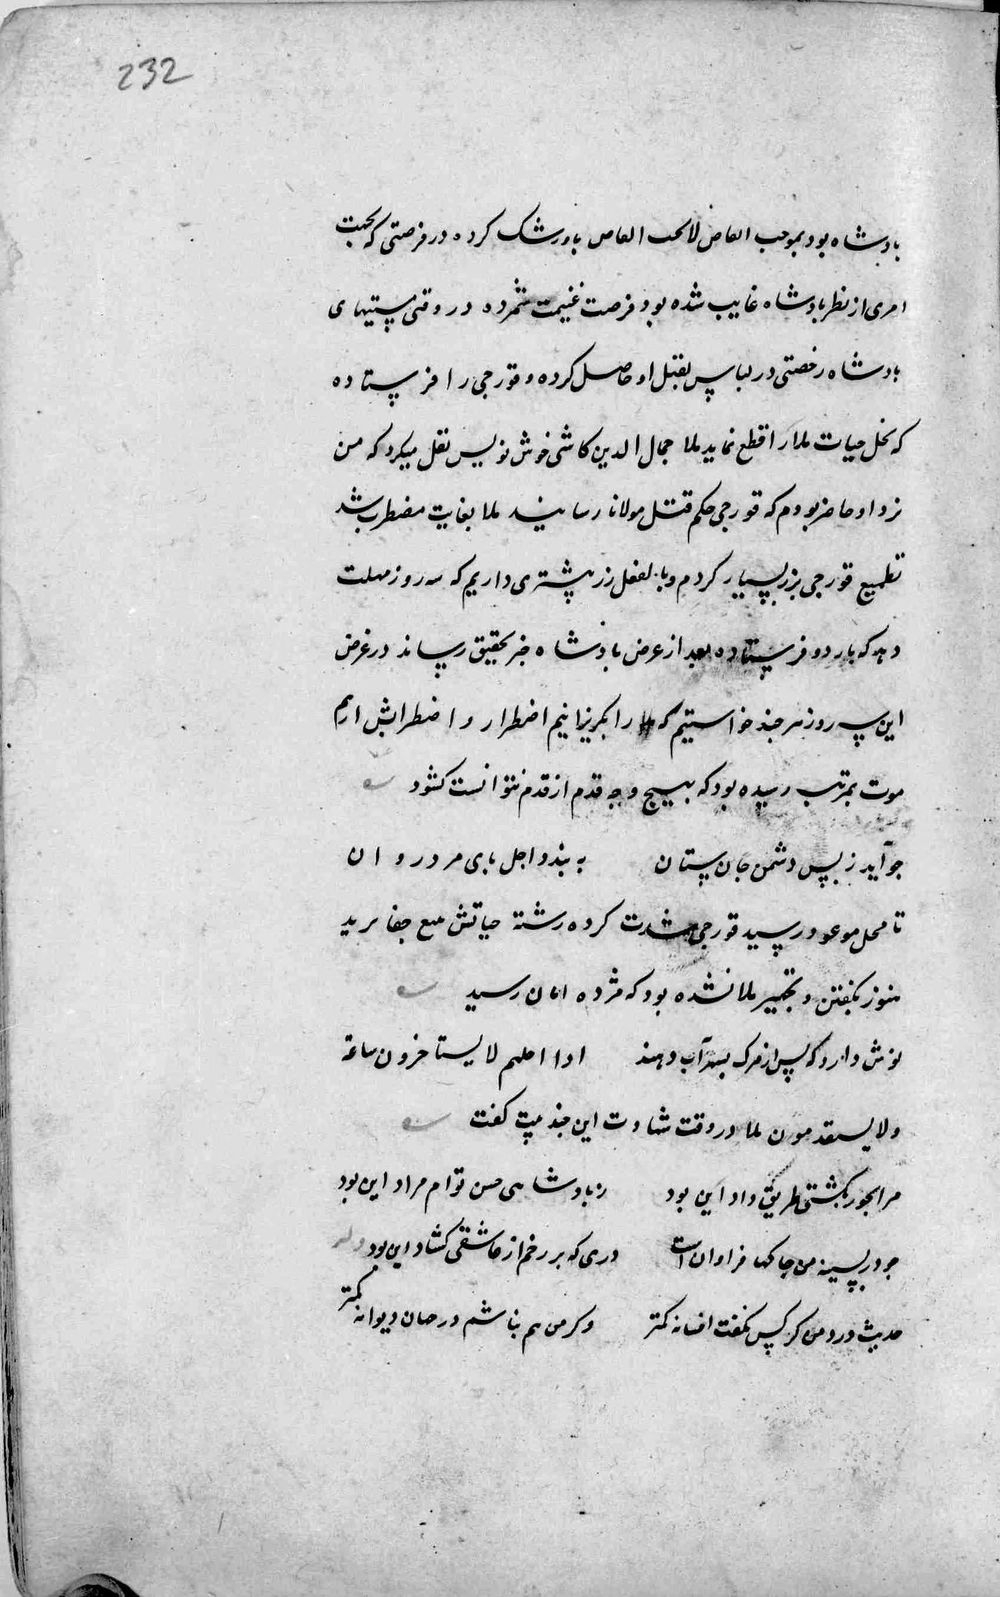 232
پادشاه بود بموجب القاص لا یحب القاص باو رشک کرده در فرصتی که بجهت
امری از نظر پادشاه غایب شده بود فرصت غنیمت شمرده در وقتی مستیهای
پادشاه رخصتی در لباس بقتل او حاصل کرده و قورجی را فرستاده
که نخل حیات ملا را قطع نماید ملا جمال الدین کاشی خوش نویس نقل میکرد که من
نزد او حاضر بودم که قورجی حکم قتل مولانا رسانید ملا بغایت مضطرب شد
تطمیع قورجی بزر بسیار کردم و بالفعل زر بیشتری داریم که سه روز مهلت
دهد که باردو فرستاده بعد از عرض پادشاه خبر تحقیق رساند در عرض
این سه روز هر چند خواستیم که ملا را بگریزانیم اضطرار و اضطرابش از بیم
موت بمرتبه رسیده بود که بهیچ وجه قدم از قدم نتوانست کشود
چو آید ز پس دشمن جان ستان به بندد اجل پای مرد روان
تا محل موعود رسید قورجی شدت کرده رشته حیاتش بتیغ جفا برید
هنوز بکفن و تجهیز ملا نشده بود که مژده امان رسید
نوش دارو که پس از مرگ بسهراب دهند اذا اجلهم لا یستاخرون ساعة
ولا یستقدمون ملا در وقت شهادت این چند بیت گفت
مرا بجور بکشتی طریق داد این بود ز پادشاهی حسن توام مراد این بود
چو در بسینه من چاکها فراوان است دری که بر رخم از عاشقی کشاد این بود وله
حدیث درد من گر کس نگفت افسانه کمتر وگر من هم نباشم در جهان دیوانه کمتر